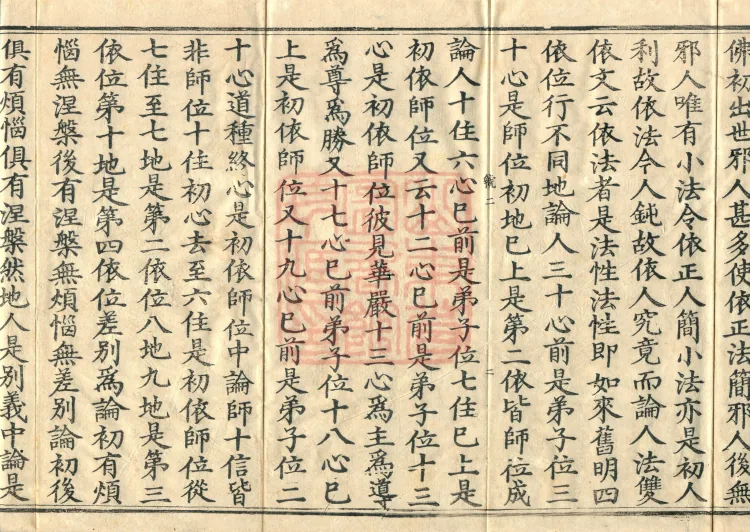 佛初出世邪人甚多使依正法簡邪人後無
邪人唯有小法令依正人簡小法亦是初人
利故依法令人鈍故依人究竟而論人法雙
依文云依法者是法性法性即如來舊明四
依位行不同地論人三十心前是弟子位三
十心是師位初地已上是第二依皆師位成
論人十住六心已前是弟子位七住已上是
初依師位又云十二心已前是弟子位十三
心是初依師位彼見華嚴十三心為主為導
為尊為勝又十七心已前弟子位十八心已
上是初依師位又十九心已前是弟子位二
十心道種終心是初依師位中論師十信皆
非師位十住初心去至六住是初依師位從
七住至七地是第二依位八地九地是第三
依位第十地是第四依位差別為論初有煩
惱無涅槃後有涅槃無煩惱無差別論初後
俱有煩惱俱有涅槃然地人是別義中論是